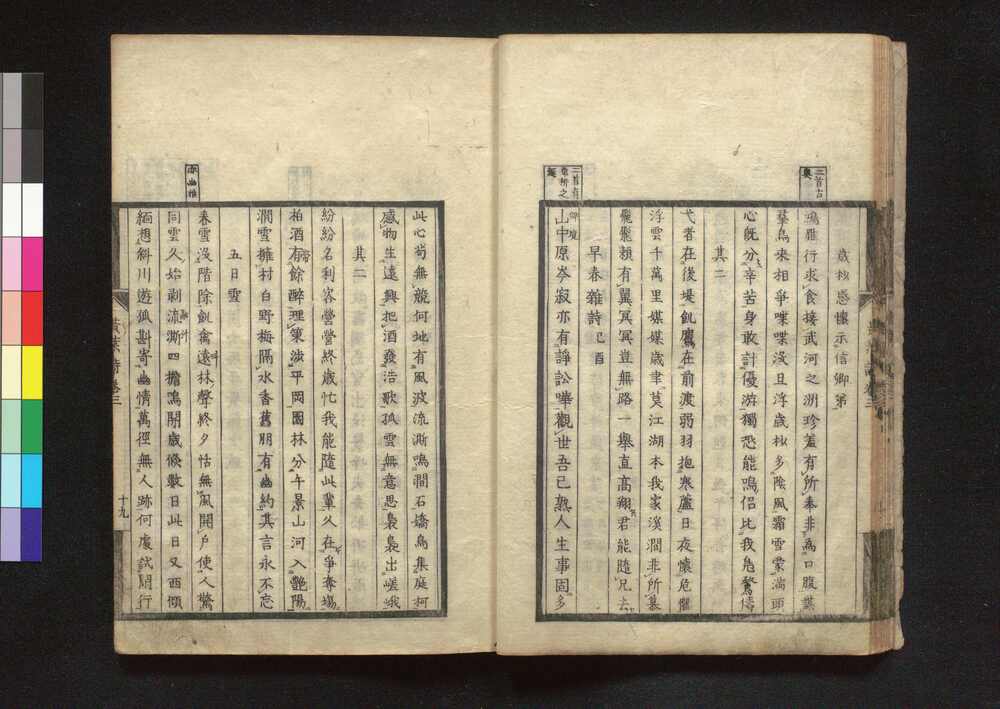 歲杪感懷示信卿弟
鴻雁行求食接武河之洲珍羞有所奉非為口腹業
羣鳥來相爭喋喋沒且浮歲杪多陰風霜雪蒙滿頭
心既分辛苦身敢計優游獨恐能鳴侶比我鳧鶩儔
其二
弋者在後堤飢鷹在前渡弱羽抱寒蘆日夜懷危懼
浮雲千萬里媒媒歲聿莫江湖本我家溪澗非所慕
飛飛賴有翼冥冥豈無路一舉直高翔君能隨兄去
早春雜詩己酉
山中原岑寂亦有諍訟嘩觀世吾已熟人生事固多
此心苟無競何地有風波流澌鳴澗石嬌鳥集庭柯
感物生遠興把酒發浩歌孤雲無意思裊裊出嵯峨
其二
紛紛名利客營營終歲忙我能隨此輩久在爭奪場
柏酒有餘醉理策涉平岡園林分午景山河入艷陽
澗雪擁村白野梅隔水香舊朋有幽約其言永不忘
五日雪
春雪沒階除飢禽遠林聲終夕怙無風開戶使人驚
同雲久始剥流澌四擔鳴閉歲候數日此日又西傾
緬想斜川遊孤斟寄幽情萬徑無人跡何處試閒行
三首古
三首有
亦幽雅
黃葉詩卷三
十九